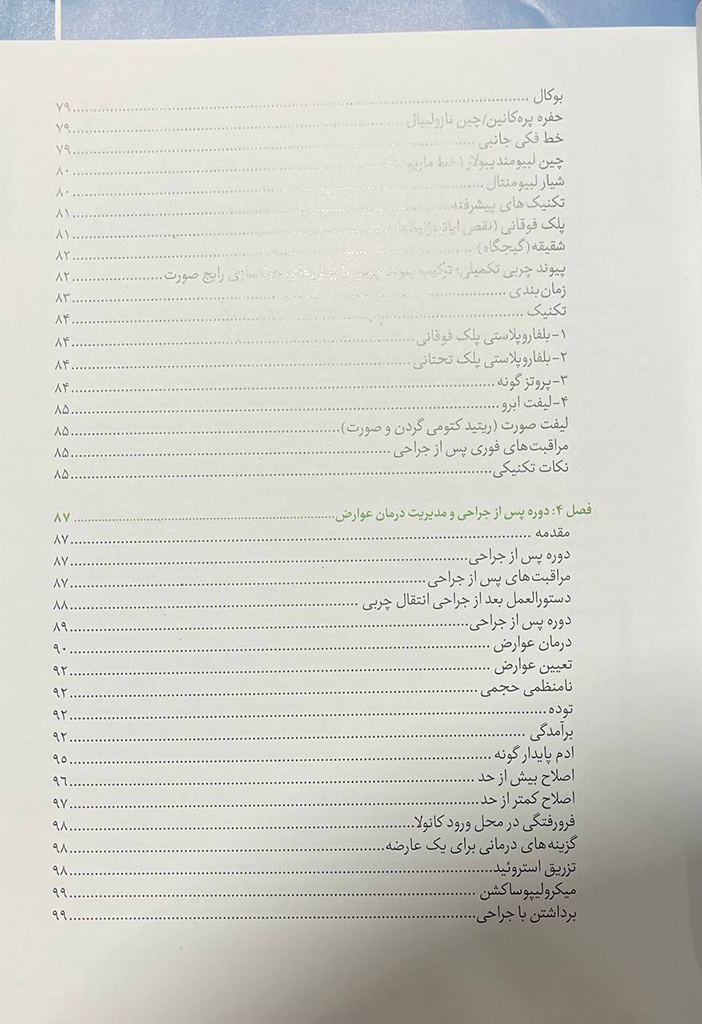 بوکال ........ ۷۹
حفره پره‌کانین/چین نازولبیال ........ ۷۹
خط فکی جانبی ........ ۷۹
چین لبیومندیبولار (خط ........ ۸۰
شیار لبیومنتال ........ ۸۰
تکنیک‌های پیشرفته ........ ۸۱
پلک فوقانی (نقص ........ ۸۱
شقیقه (گیجگاه) ........ ۸۲
پیوند چربی تکمیلی؛ ترکیب پیوند چربی رایج صورت ........ ۸۲
زمان‌بندی ........ ۸۳
تکنیک ........ ۸۴
۱-بلفاروپلاستی پلک فوقانی ........ ۸۴
۲-بلفاروپلاستی پلک تحتانی ........ ۸۴
۳-پروتز گونه ........ ۸۴
۴-لیفت ابرو ........ ۸۵
لیفت صورت (ریتید کتومی گردن و صورت) ........ ۸۵
مراقبت‌های فوری پس از جراحی ........ ۸۵
نکات تکنیکی ........ ۸۵
فصل ۴: دوره پس از جراحی و مدیریت درمان عوارض ........ ۸۷
مقدمه ........ ۸۷
دوره پس از جراحی ........ ۸۷
مراقبت‌های پس از جراحی ........ ۸۷
دستورالعمل بعد از جراحی انتقال چربی ........ ۸۸
دوره پس از جراحی ........ ۸۹
درمان عوارض ........ ۹۰
تعیین عوارض ........ ۹۲
نامنظمی حجمی ........ ۹۲
توده ........ ۹۲
برآمدگی ........ ۹۲
ادم پایدار گونه ........ ۹۵
اصلاح بیش از حد ........ ۹۶
اصلاح کمتر از حد ........ ۹۷
فرورفتگی در محل ورود کانولا ........ ۹۸
گزینه‌های درمانی برای یک عارضه ........ ۹۸
تزریق استروئید ........ ۹۸
میکرولیپوساکشن ........ ۹۹
برداشتن با جراحی ........ ۹۹